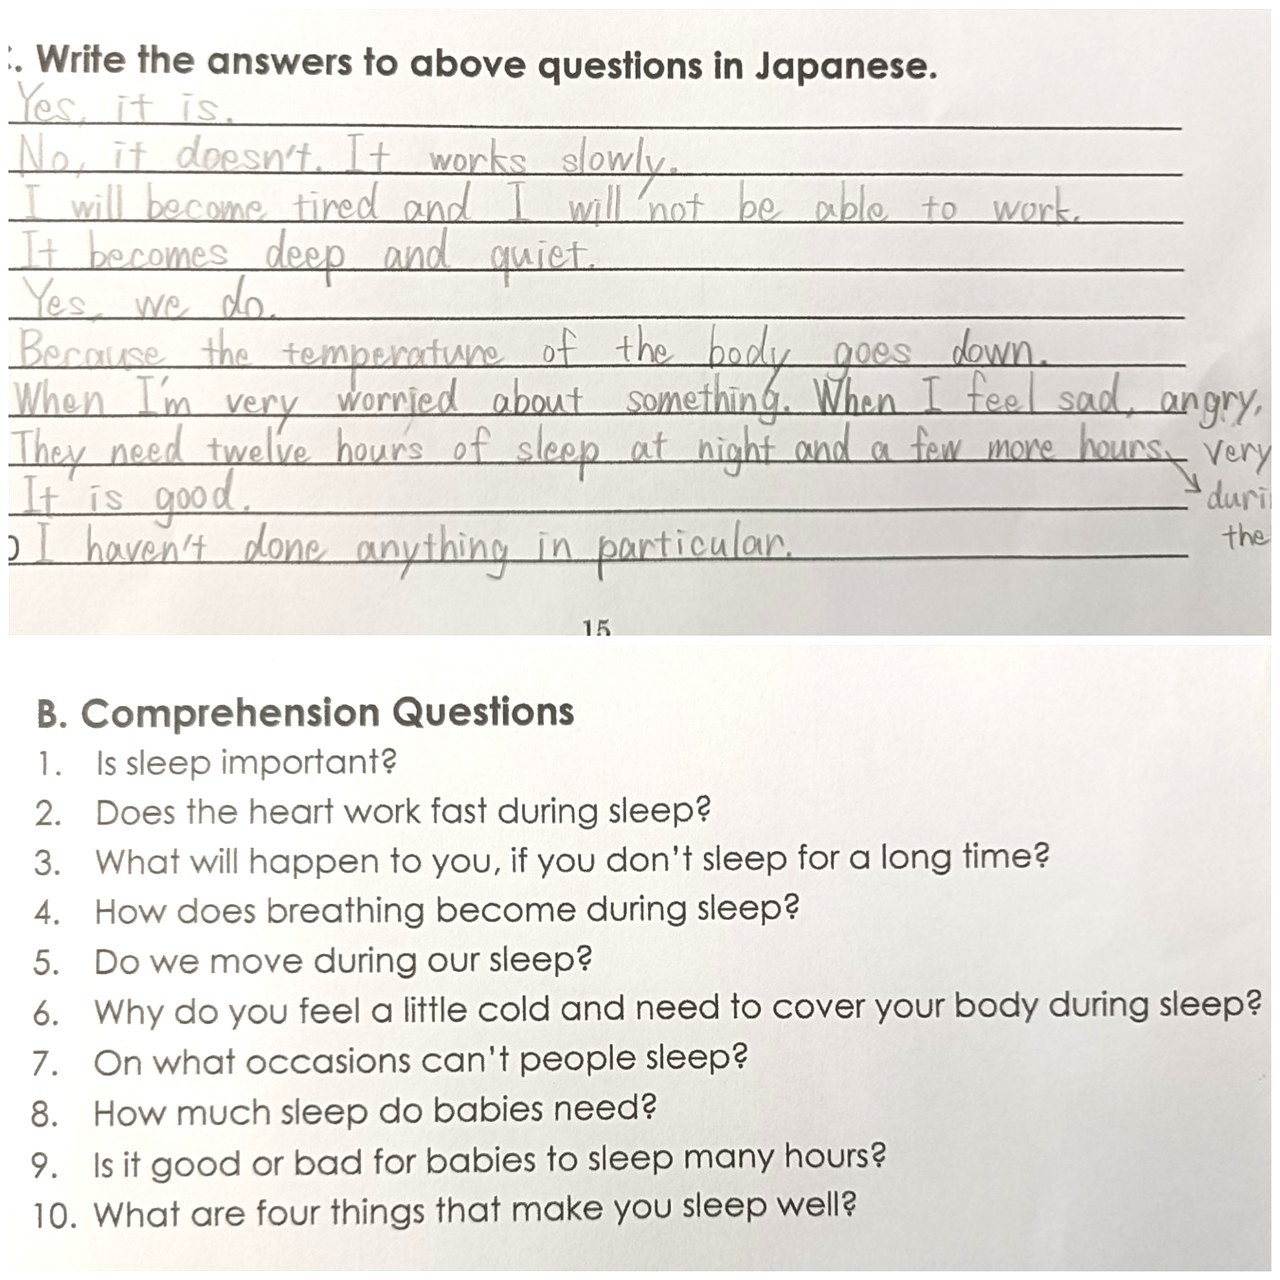 . Write the answers to above questions in Japanese.
Yes, it is.
No, it doesn't. It works slowly.
I will become tired and I will not be able to work.
It becomes deep and quiet.
Yes, we do.
Because the temperature of the body goes down.
When I'm very worried about something. When I feel sad, angry,
They need twelve hours of sleep at night and a few more hours very
It is good. duri
I haven't done anything in particular. the
15
B. Comprehension Questions
1. Is sleep important?
2. Does the heart work fast during sleep?
3. What will happen to you, if you don't sleep for a long time?
4. How does breathing become during sleep?
5. Do we move during our sleep?
6. Why do you feel a little cold and need to cover your body during sleep?
7. On what occasions can't people sleep?
8. How much sleep do babies need?
9. Is it good or bad for babies to sleep many hours?
10. What are four things that make you sleep well?